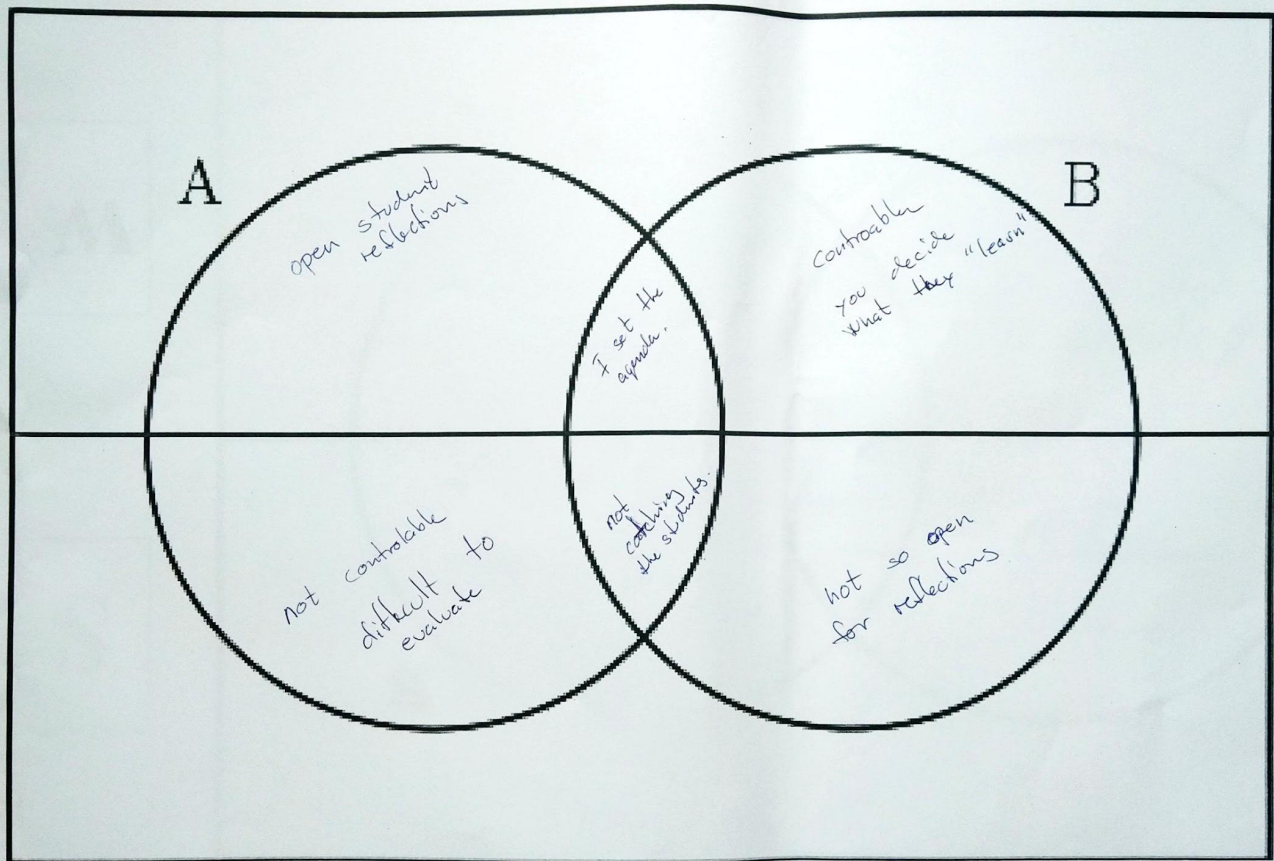 A
B
open student
reflections
I set the
agenda.
controabler
you decide
what they "learn"
not controlable
difficult to
evaluate
not
catching
the students.
not so open
for reflections